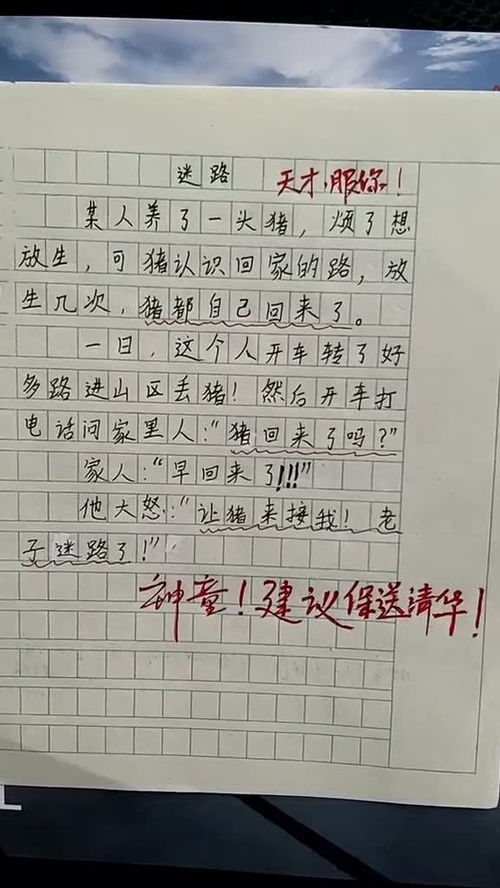 迷路 天才,服你!
某人养了一头猪,烦了想
放生,可猪认识回家的路,放
生几次,猪都自己回来了。
一日,这个人开车转了好
多路进山区丢猪!然后开车打
电话问家里人:“猪回来了吗?”
家人:“早回来了!!!”
他大怒:“让猪来接我!老
子迷路了!”
神童!建议保送清华!